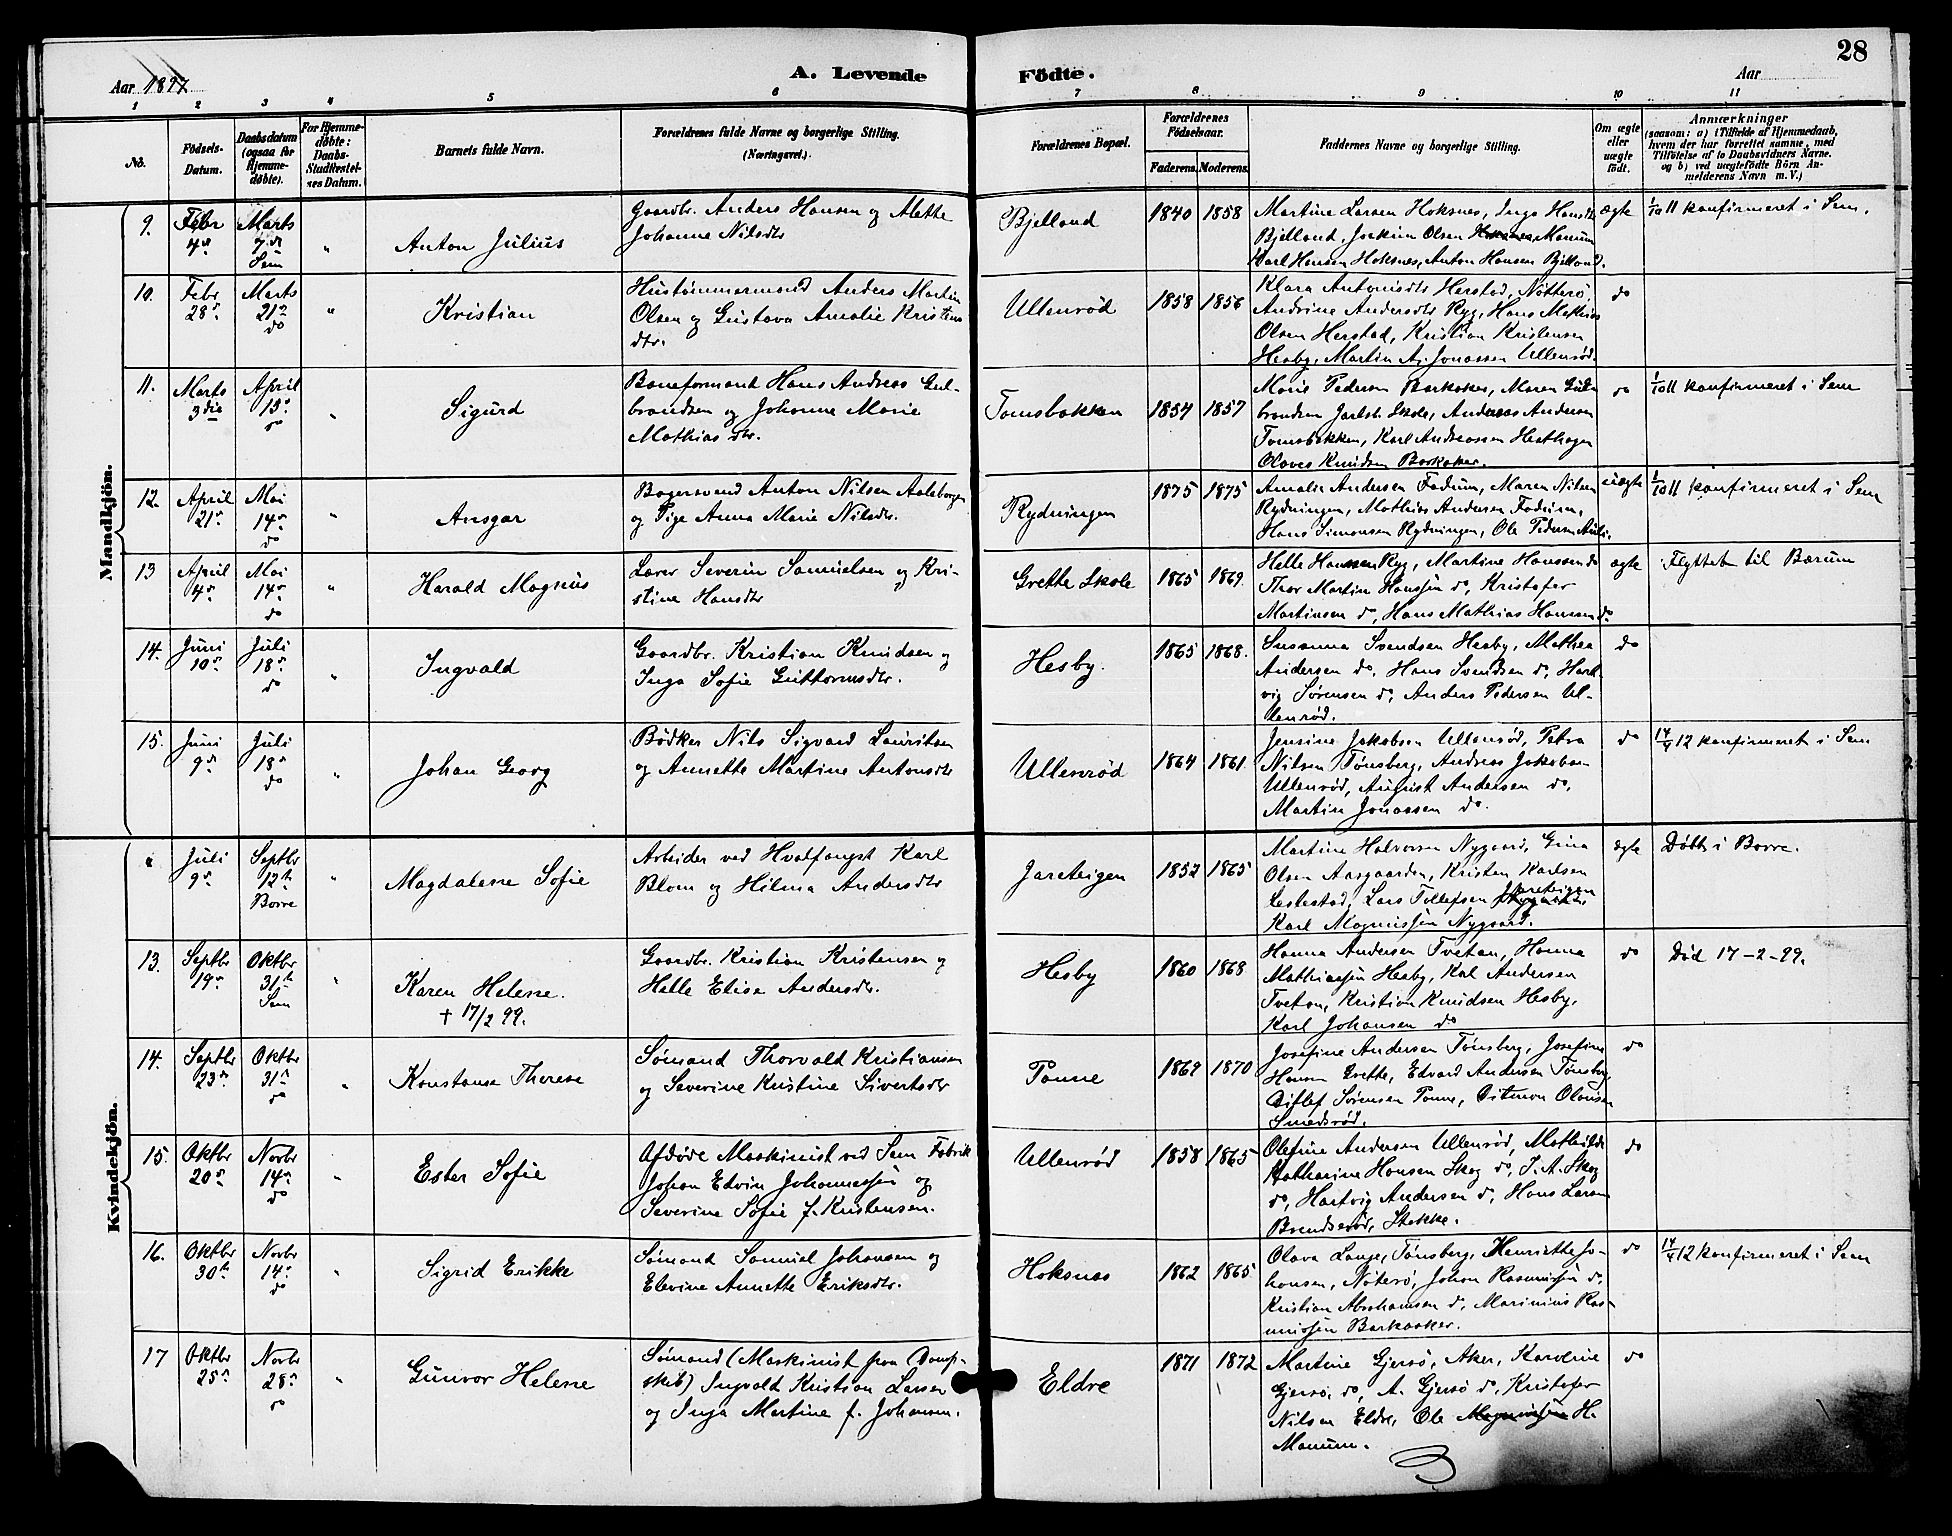 28
Aar 1897
A. Levende Födte.
Aar
1 2 3 4 5 6 7 8 9 10 11
No.
Födsels-Datum.
Daabsdatum (ogsaa for Hjemme-døbte).
For Hjemme-døbte: Daabs-Stadfæstel-ses Datum.
Barnets fulde Navn.
Forældrenes fulde Navne og borgerlige Stilling. (Næringsvei.)
Forældrenes Bopæl.
Forældrenes Fødselsaar.
Faderens. Moderens.
Faddernes Navne og borgerlige Stilling.
Om ægte eller uægte født.
Anmærkninger
(saasom: a) i Tilfælde af Hjemmedaab, hvem der har forrettet samme, med Tilføielse af to Daabsvidners Navne. og b) ved uægtefødte Børn Anmelderens Navn m. V.)
Mandkjön.
9. Febr 4de Marts 7de Sem " Anton Julius
Gaardbr. Anders Hansen og Mathe
Johanne Nilsdtr
Bjelland 1840 1858
Martine Larsen Hoksnes, Inga Hansdtr
Bjelland, Joakim Olsen Manum
Karl Hansen Hoksnes, Anton Hansen Bjelland.
ægte 1/10 11 konfirmeret i Sem.
10. Febr 28de Marts 21de do " Kristian
Hustømmermand Anders Martin
Olsen og Gustava Amalie Kristens
dtr.
Ullenrød 1858 1856
Klara Antonisdtr Herstad, Nøtterø,
Andrine Andersdtr Ryg, Hans Mathias
Olsen Herstad, Kristian Kristensen
Hesby, Martin A. Jonassen Ullenrød.
do
11. Marts 3die April 15de do " Sigurd
Baneformand Hans Andreas Gul-
brandsen og Johanne Marie
Mathiasdtr.
Tomsbakken 1854 1857
Maris Pedersen Barkaker, Maren Gul-
brandsen Jarlsb. Skole, Andreas Andersen
Tomsbakken, Karl Andreassen Hesthagen
Olaves Knudsen Barkaker.
do 1/10 11 konfirmeret i Sem
12. April 21de Mai 14de do " Ansgar
Bagersvend Anton Nilsen Aaleborgen
og Pige Anna Marie Nilsdtr.
Rydningen 1875 1875
Amalie Andersen Fadum, Maren Nilsen
Rydningen, Mathias Andersen Fadum,
Hans Simonsen Rydningen, Ole Pedersen Auli.
uægte 1/10 11 konfirmeret i Sem
13 April 4de Mai 14de do " Harald Magnus
Lærer Severin Samuelsen og Kri-
stine Hansdtr
Grette Skole 1865 1869.
Helle Hansen Ryg, Martine Hanssen do
Thor Martin Hanssen do, Kristofer
Martinsen do, Hans Mathias Hansen do
ægte Flyttet til Bærum
14. Juni 10de Juli 18de do " Ingvald
Gaardbr. Kristian Knudsen og
Inga Sofie Guttormsdtr.
Hesby. 1865 1868.
Susanna Svendsen Hesby, Mathea
Andersen do, Hans Svendsen do, Hart-
vig Sørensen do, Anders Pedersen Ul-
lenrød.
do
15. Juni 9de Juli 18de do " Johan Georg
Bødker Nils Sigvard Lauritsen
og Annette Martine Antonsdtr
Ullenrød 1864 1861.
Jensine Jakobsen Ullenrød, Petra
Nilsen Tønsberg, Andreas Jakobsen
Ullenrød, August Andersen do,
Martin Jonassen do.
do 14/4 12 konfirmeret i Sem
Kvindekjön.
Juli 9de Septbr 12te Borre " Magdalene Sofie
Arbeider ved Hvalfangst Karl
Blom og Hilma Andersdtr
Jareteigen 1852 1865
Martine Halvorsen Nygaard, Gina
Olsen Aasgaarden, Kristen Karlsen
Lefsestad, Lars Tollefsen Jareteigen
Karl Magnussen Nygaard.
ægte Døbt i Borre.
13. Septbr 19de Oktbr 31te Sem " Karen Helene.
+ 17/2 99.
Gaardbr. Kristian Kristensen og
Helle Elise Andersdtr.
Hesby 1860 1868
Hanna Andersen Tveten, Hanna
Mathiassen Hesby, Karl Andersen
Tveten, Kristian Knudsen Hesby,
Karl Johansen do
do Død 17-2-99.
14. Septbr 23de Oktbr 31te do " Konstanse Therese
Sømand Thorvald Kristiansen
og Severine Kristine Sivertsdtr
Ponne 1869 1870
Josefine Andersen Tønsberg, Josefine
Hansen Grette, Edvard Andersen Tønsberg
Ditlef Sørensen Ponne, Ditman Olausen
Smedsrød.
do
15. Oktbr 20de Novbr 14de do " Ester Sofie
Afdøde Maskinist ved Sem Fabrik
Johan Edvin Johannessen og
Severine Sofie f. Kristensen.
Ullenrød 1858 1865
Olefine Andersen Ullenrød, Mathilde
Katharine Hansen Skog do, J. A. Skog
do, Hartvig Andersen do, Hans Larsen
Brendserød, Stokke.
do
16. Oktbr 30te Novbr 14de do " Sigrid Erikke
Sømand Samuel Johansen og
Elevine Annette Eriksdtr.
Hoksnes 1862 1865
Olava Lange, Tønsberg, Henriette Jo-
hansen, Nøterø, Johan Rasmussen do,
Kristian Abrahamsen do, Marinius Ras-
mussen Barkaaker.
do 14/4 12 konfirmeret i Sem
17 Oktbr 25de Novbr 28de do " Gunvor Helene
Sømand (Maskinist paa Damp-
skib) Ingvald Kristian Larsen
og Inga Martine f. Johansen.
Eldre 1871 1872
Martine Gjersø, Aker, Karoline
Gjersø, do, A. Gjersø do, Kristofer
Nilsen Eldre, Ole Magnussen H.
Manum.
do